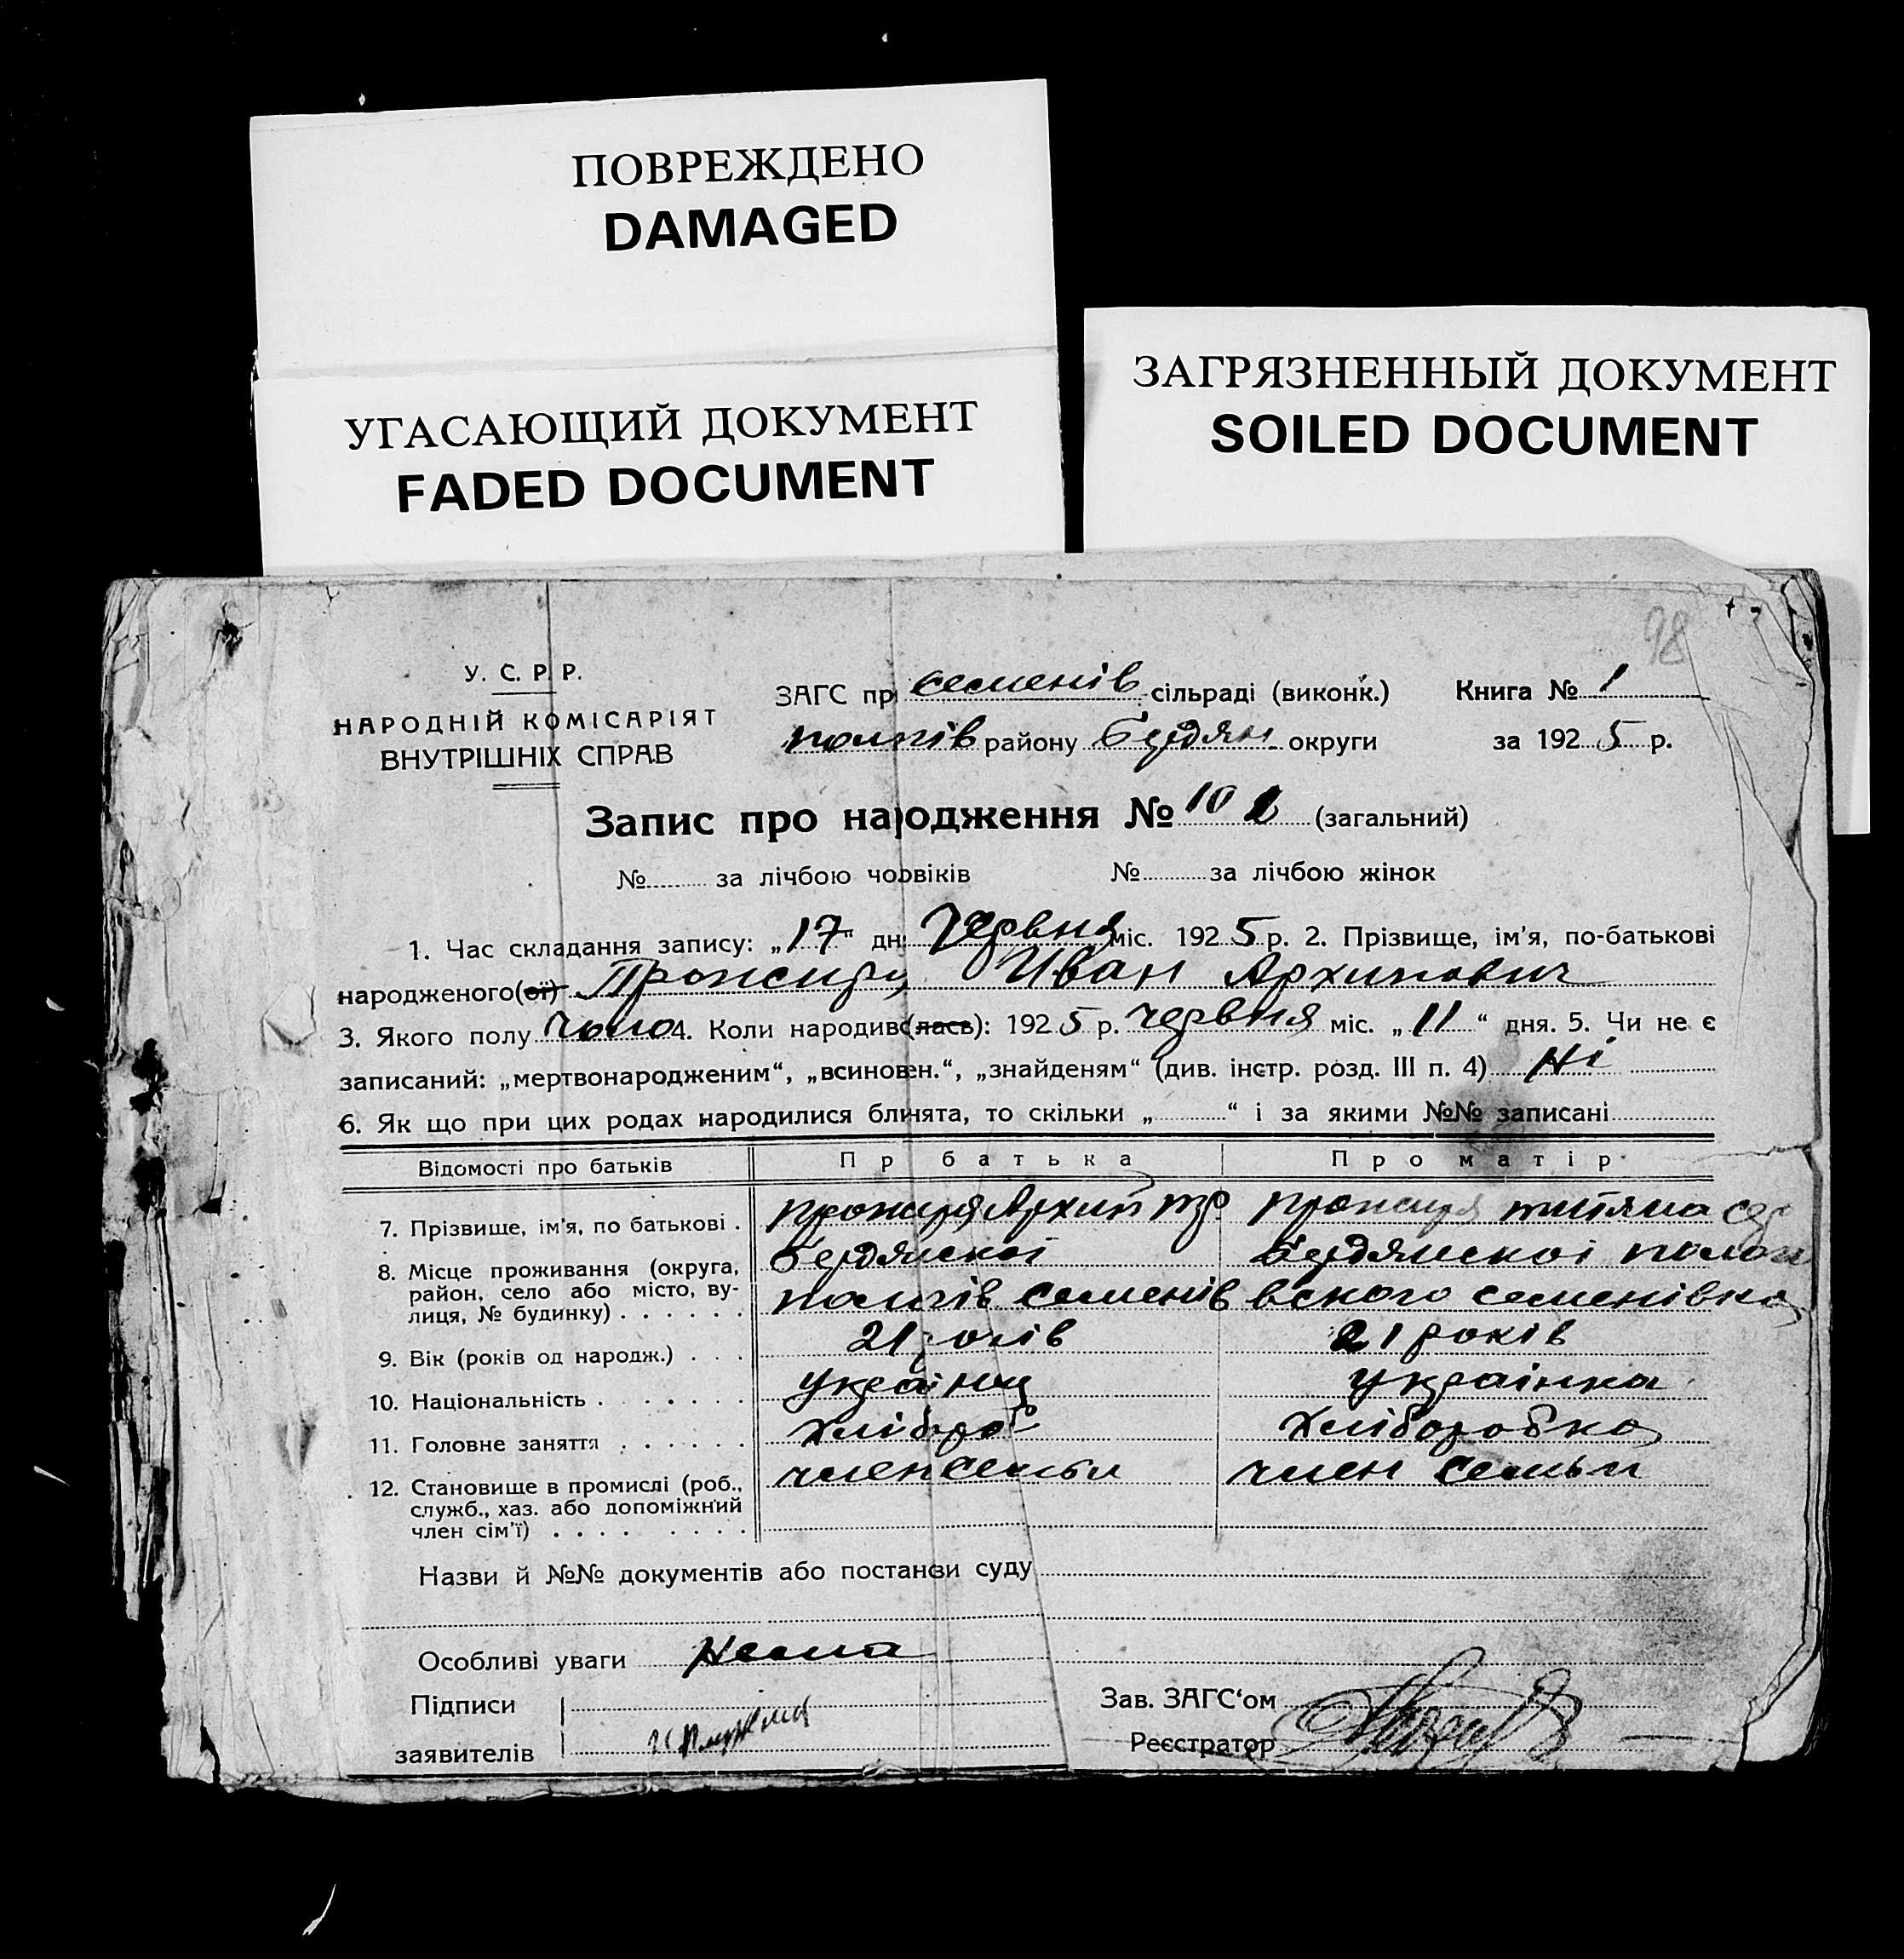 ПОВРЕЖДЕНО
DAMAGED
УГАСАЮЩИЙ ДОКУМЕНТ
FADED DOCUMENT
ЗАГРЯЗНЕННЫЙ ДОКУМЕНТ
SOILED DOCUMENT
98
У. С. Р. Р.
НАРОДНІЙ КОМІСАРІЯТ
ВНУТРІШНІХ СПРАВ
ЗАГС пр семенів сільраді (виконк.) Книга № 1
пологів району Бердян округи за 1925 р.
Запис про народження № 102 (загальний)
№ за лічбою човвіків № за лічбою жінок
1. Час складання запису: „17“ дн. Червня міс. 1925 р. 2. Прізвище, ім'я, по-батькові
народженого(ої) Иван Архипович
3. Якого полу 4. Коли народивс(лась): 1925 р. червня міс. „11“ дня. 5. Чи не є
записаний: „мертвонародженим“, „всиновен.“, „знайденям“ (див. інстр. розд. III п. 4) Ні
6. Як що при цих родах народилися блинята, то скільки „ “ і за якими №№ записані
Відомості про батьків Пр батька Про матір
7. Прізвище, ім'я, по батькові . Архип
8. Місце проживання (округа, район, село або місто, вулиця, № будинку) . . . . . .
Бердянскоі Бердянскоі полог
пологів семенів вского семенівка
9. Вік (років од народж.) . . . 21 років 21 років
10. Національність . . . . . . . українц українка
11. Головне заняття . . . . . . хлібороб хлібороบка
12. Становище в промислі (роб., служб., хаз. або допоміжний член сім'ї) . . . . . . . . .
член семьи член семьи
Назви й №№ документів або постанови суду
Особливі уваги Нема
Підписи
заявителів
Зав. ЗАГС‘ом
Реєстратор